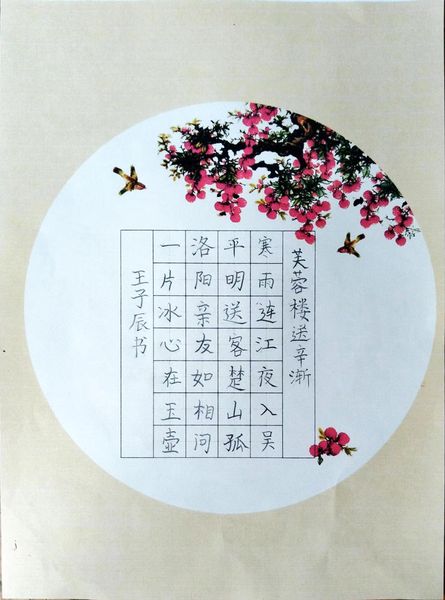 芙蓉楼送辛渐
寒雨连江夜入吴
平明送客楚山孤
洛阳亲友如相问
一片冰心在玉壶
王子辰书